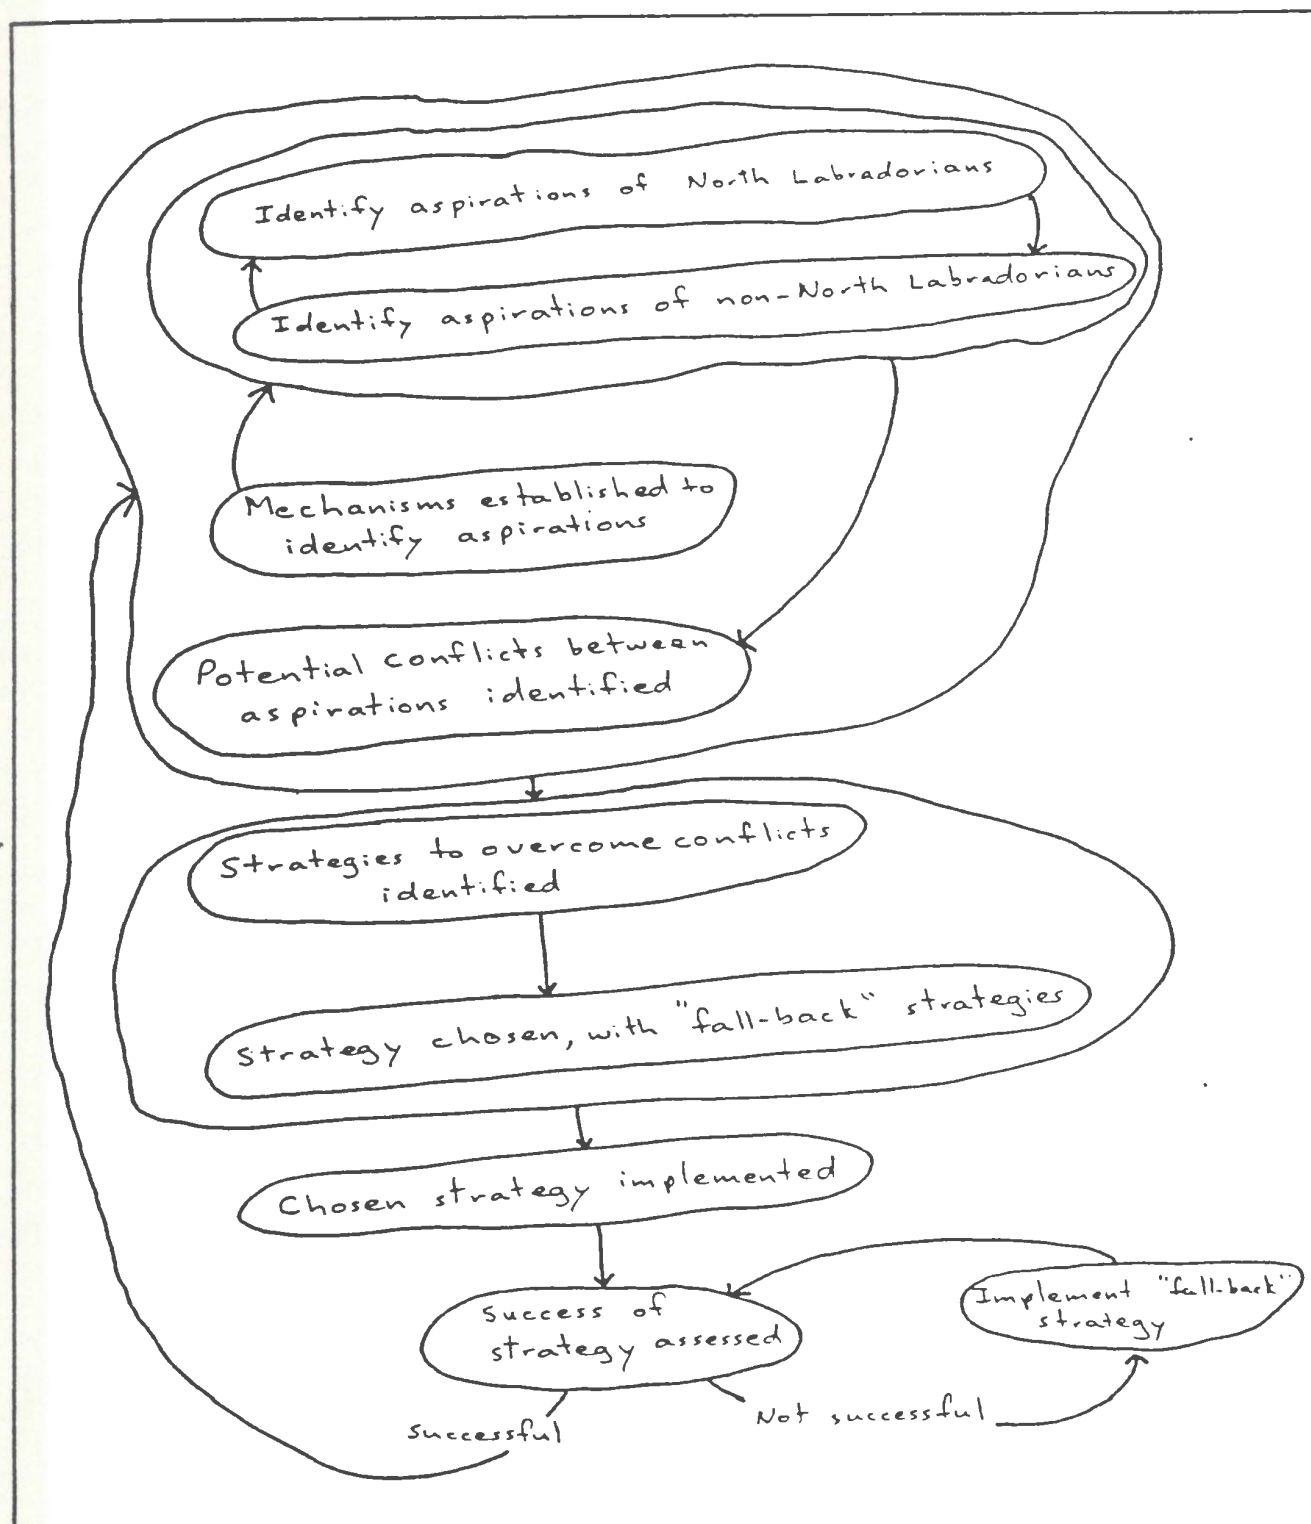 Identify aspirations of North Labradorians
Identify aspirations of non-North Labradorians
Mechanisms established to
identify aspirations
Potential conflicts between
aspirations identified
Strategies to overcome conflicts
identified
Strategy chosen, with "fall-back" strategies
Chosen strategy implemented
Success of
strategy assessed
Implement "fall-back"
strategy
Successful
Not successful